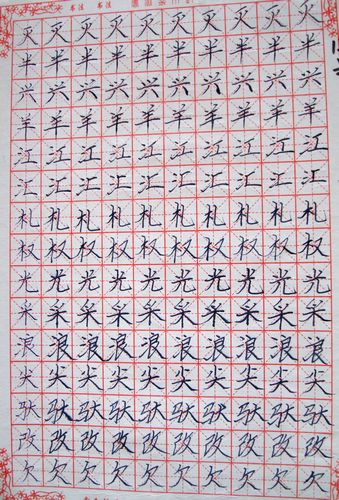 书法 书法
灭灭灭灭灭灭灭灭灭灭
半半半半半半半半半半
兴兴兴兴兴兴兴兴兴兴
羊羊羊羊羊羊羊羊羊羊
江江江江江江江江江江
汇汇汇汇汇汇汇汇汇汇
札札札札札札札札札札
权权权权权权权权权权
光光光光光光光光光光
采采采采采采采采采采
浪浪浪浪浪浪浪浪浪浪
尖尖尖尖尖尖尖尖尖尖
驮驮驮驮驮驮驮驮驮驮
改改改改改改改改改改
欠欠欠欠欠欠欠欠欠欠